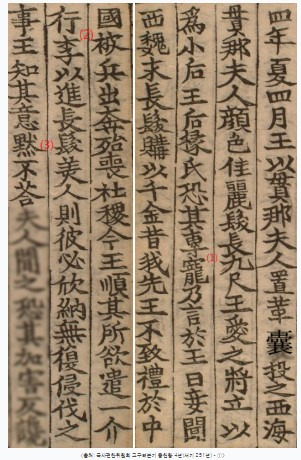 四年夏四月王以貫那夫人置革囊投之西海
貫那夫人顔色佳麗髮長九尺王愛之將立以
爲小后王后椽氏恐其專寵乃言於王曰妾聞
(1)
西魏求長髮購以千金昔我先王不致禮於中
國被兵出奔殆喪社稷今王順其所欲遣一介
(2)
行李以進長髮美人則彼必欣納無復侵伐之
(3)
事王知其意默不荅夫人聞之恐其加害反
<출처: 국사편찬위원회 고구려본기 중천왕 4년(서기 251년) - ①>